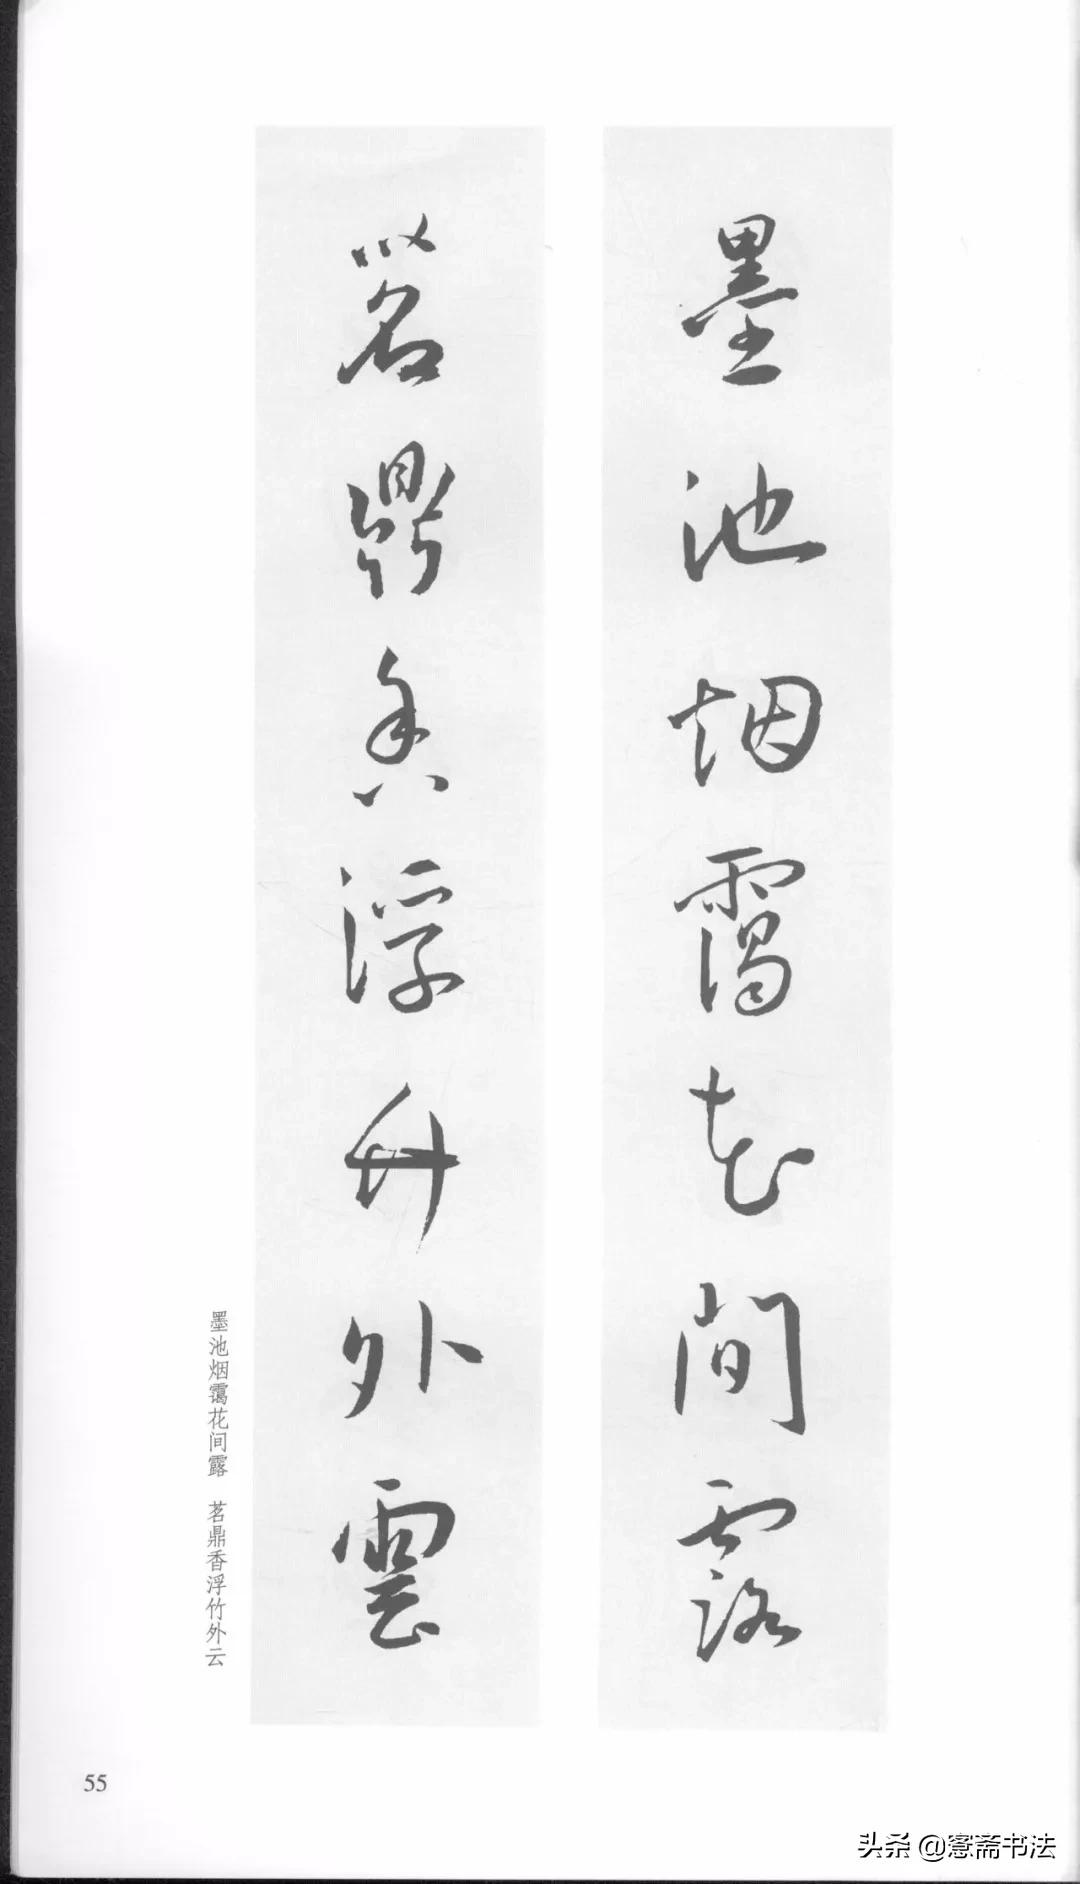 墨池烟霭花間露
茗鼎香浮竹外雲
墨池烟霭花间露 茗鼎香浮竹外云
55
头杀 @窓斋书法